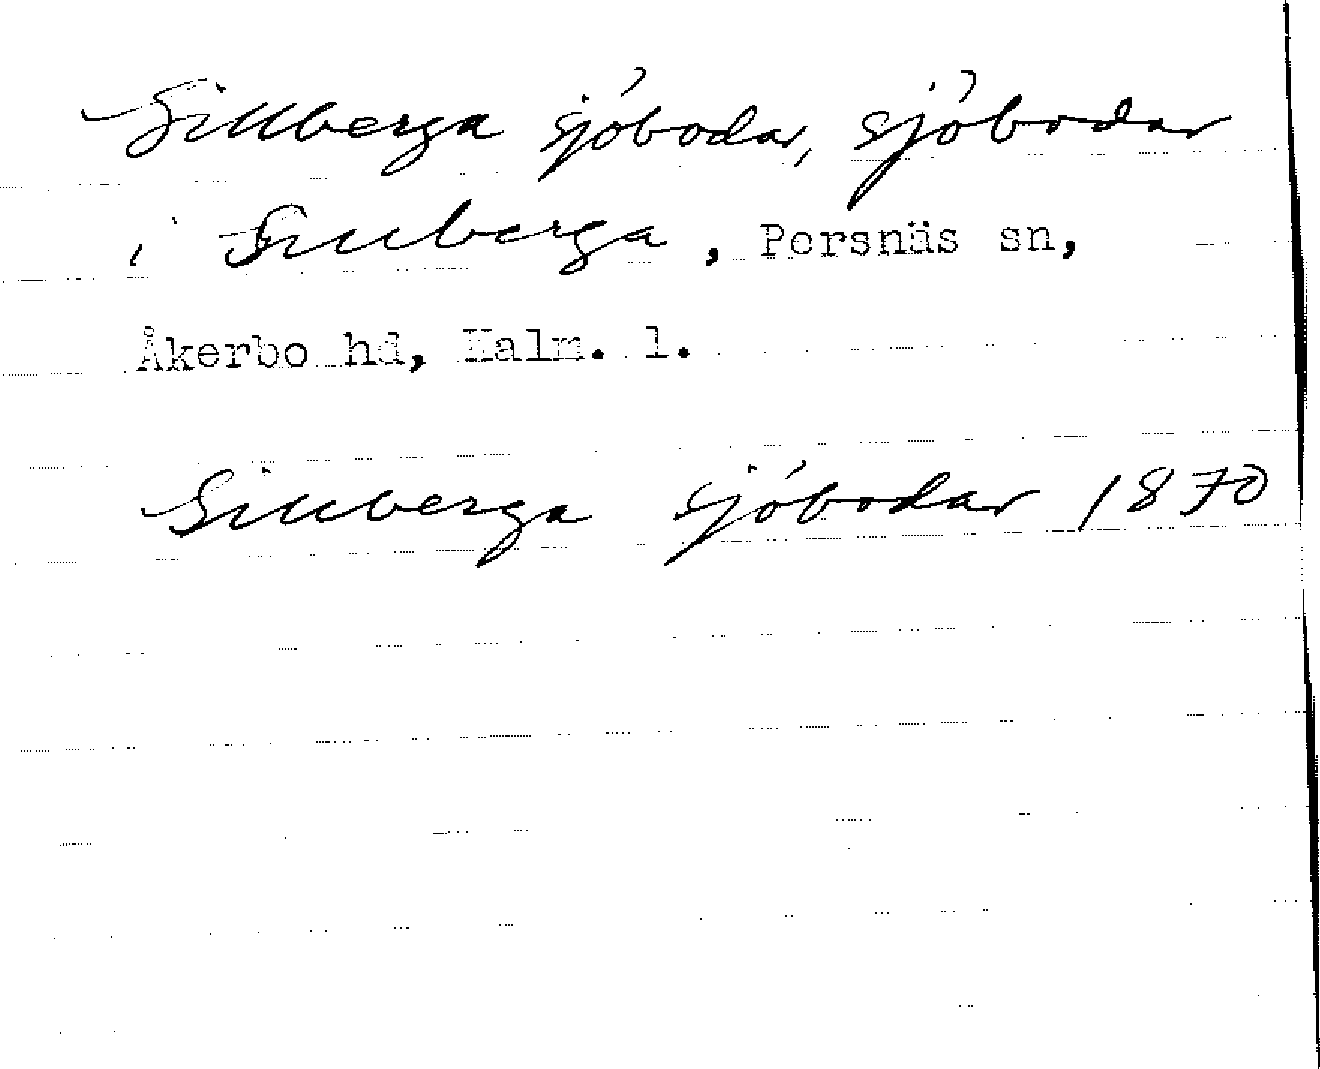 Sillberga sjöbodar, sjöbodar
i Sillberga, Persnäs sn,
Åkerbo hd, Kalm. l.
Sillberga sjöbodar 1870